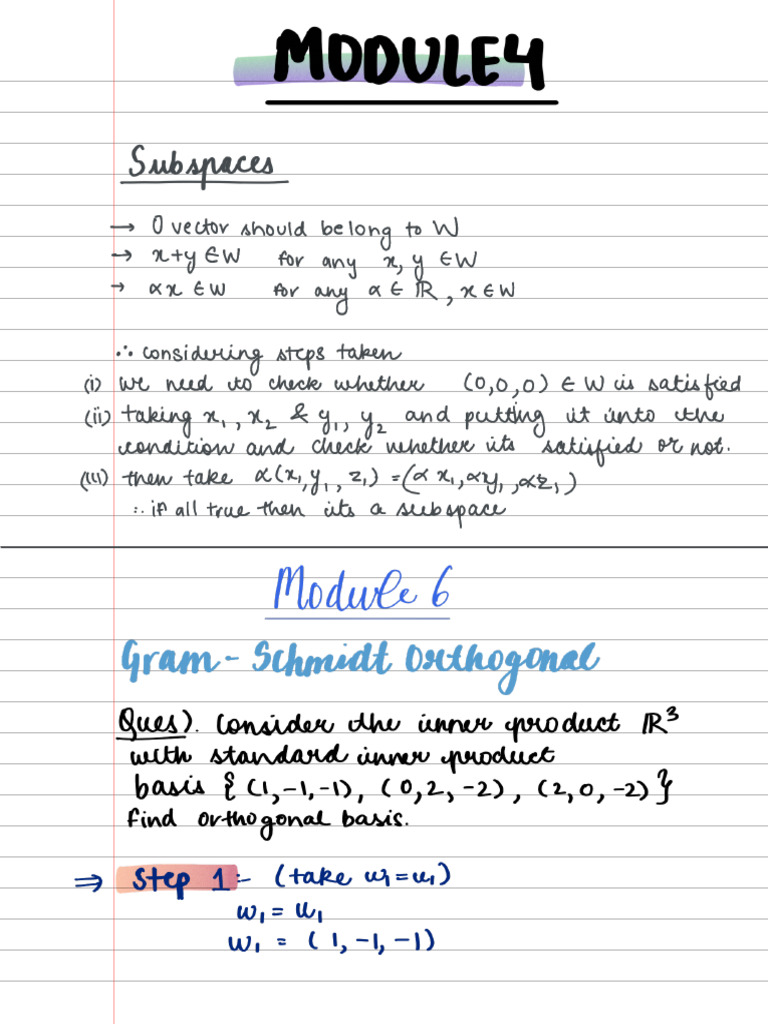 MODULE4
Subspaces
→ 0 vector should belong to W
→ x+y ∈ W for any x, y ∈ W
→ αx ∈ W for any α ∈ ℝ, x ∈ W
∴ considering steps taken
(i) we need to check whether (0,0,0) ∈ W is satisfied
(ii) taking x₁, x₂ & y₁, y₂ and putting it into the
condition and check whether its satisfied or not.
(iii) then take α(x₁, y₁, z₁) = (αx₁, αy₁, αz₁)
∴ if all true then its a subspace
Module 6
Gram - Schmidt Orthogonal
Ques). Consider the inner product ℝ³
with standard inner product
basis {(1,-1,-1), (0,2,-2), (2,0,-2)}
find orthogonal basis.
⇒ Step 1:- (take w₁=u₁)
w₁ = u₁
w₁ = (1, -1, -1)